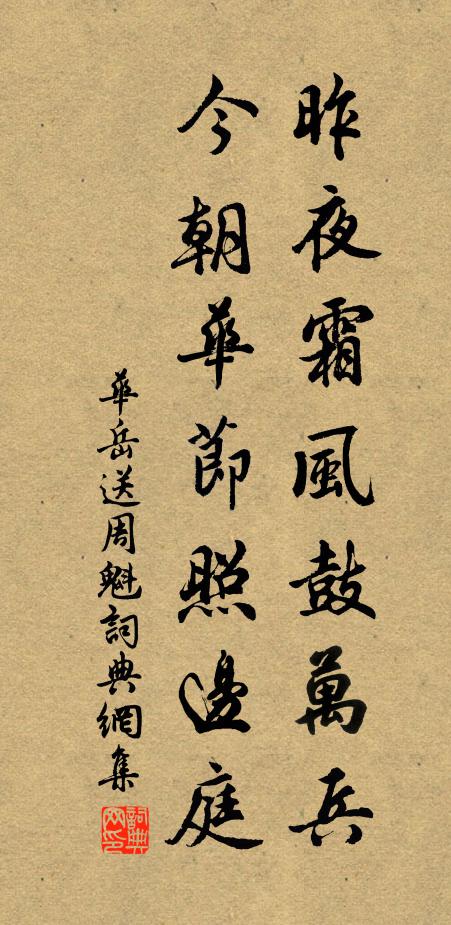 昨夜霜風鼓萬兵
今朝華節照邊庭
華岳送周魁詞典網集
詞典网印